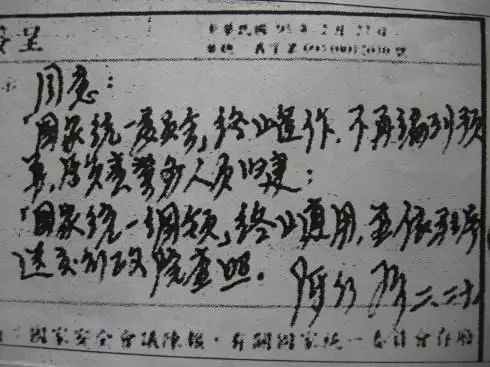 簽呈
中華民國95年2月27日
同意：
「國家統一委員會」終止運作，不再編列預
算，原負責業務人員歸建；
「國家統一綱領」終止適用，並依程序
送交行政院查照。 陳水扁 二、二十七
國家安全會議陳報，有關國家統一委員會存廢